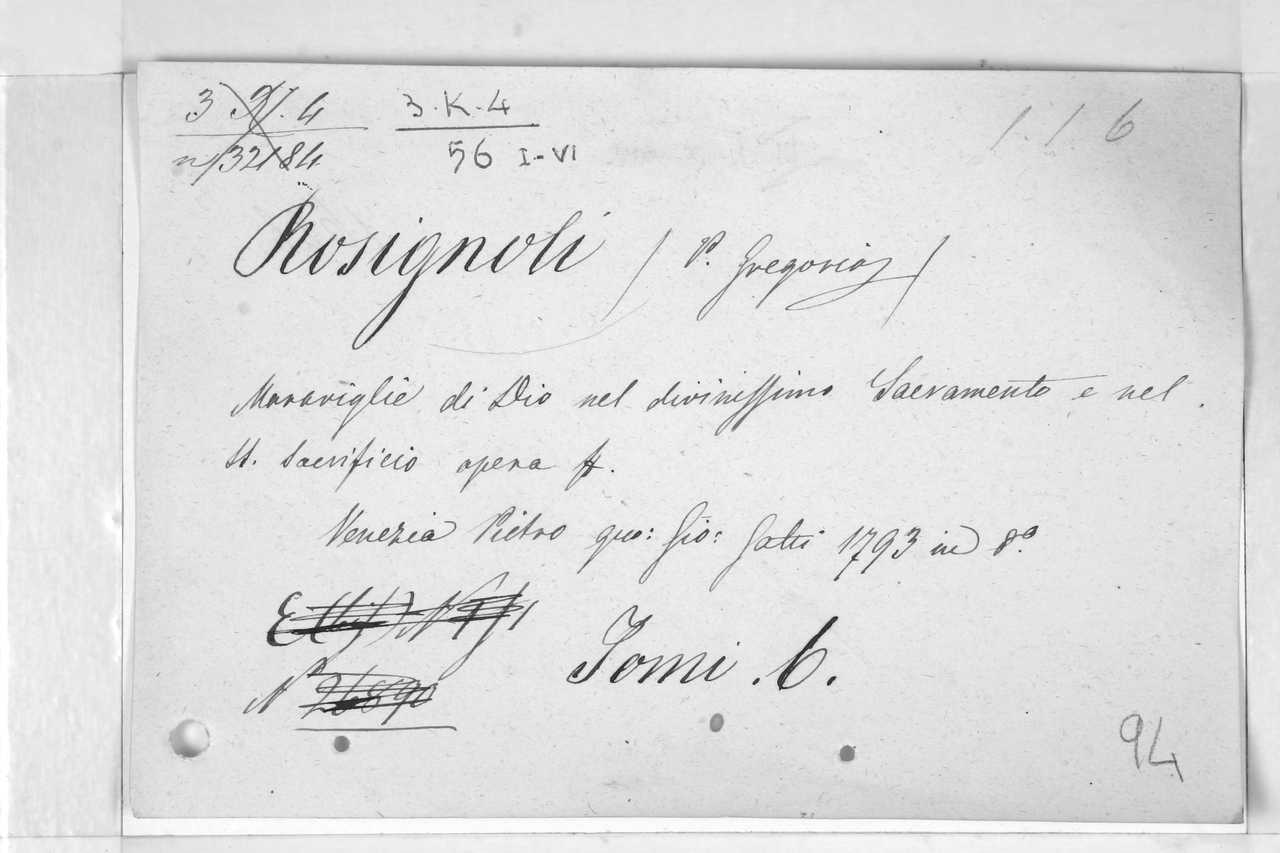 3 91. 4 3.K.4 1. 1. 6
n/32184 56 I-VI
Rosignoli (P. Gregorio)
Maraviglie di Dio nel divinissimo Sacramento e nel
St. Sacrificio opera
Venezia Pietro qu: Gio: Gatti 1793 in 8º
N° 26890 Tomi 6.
94